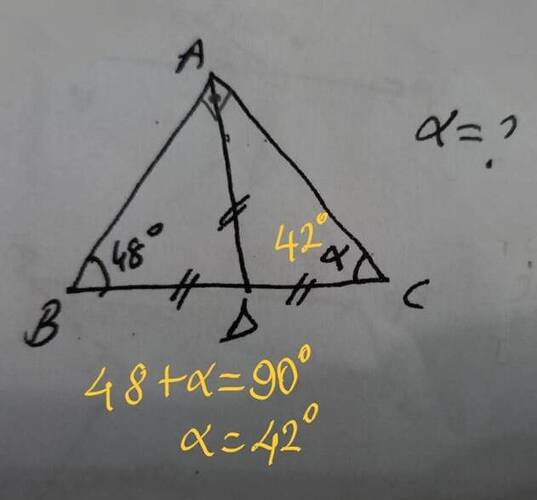 A
α=?
48°
42°
α
B
D
C
48+α=90°
α=42°